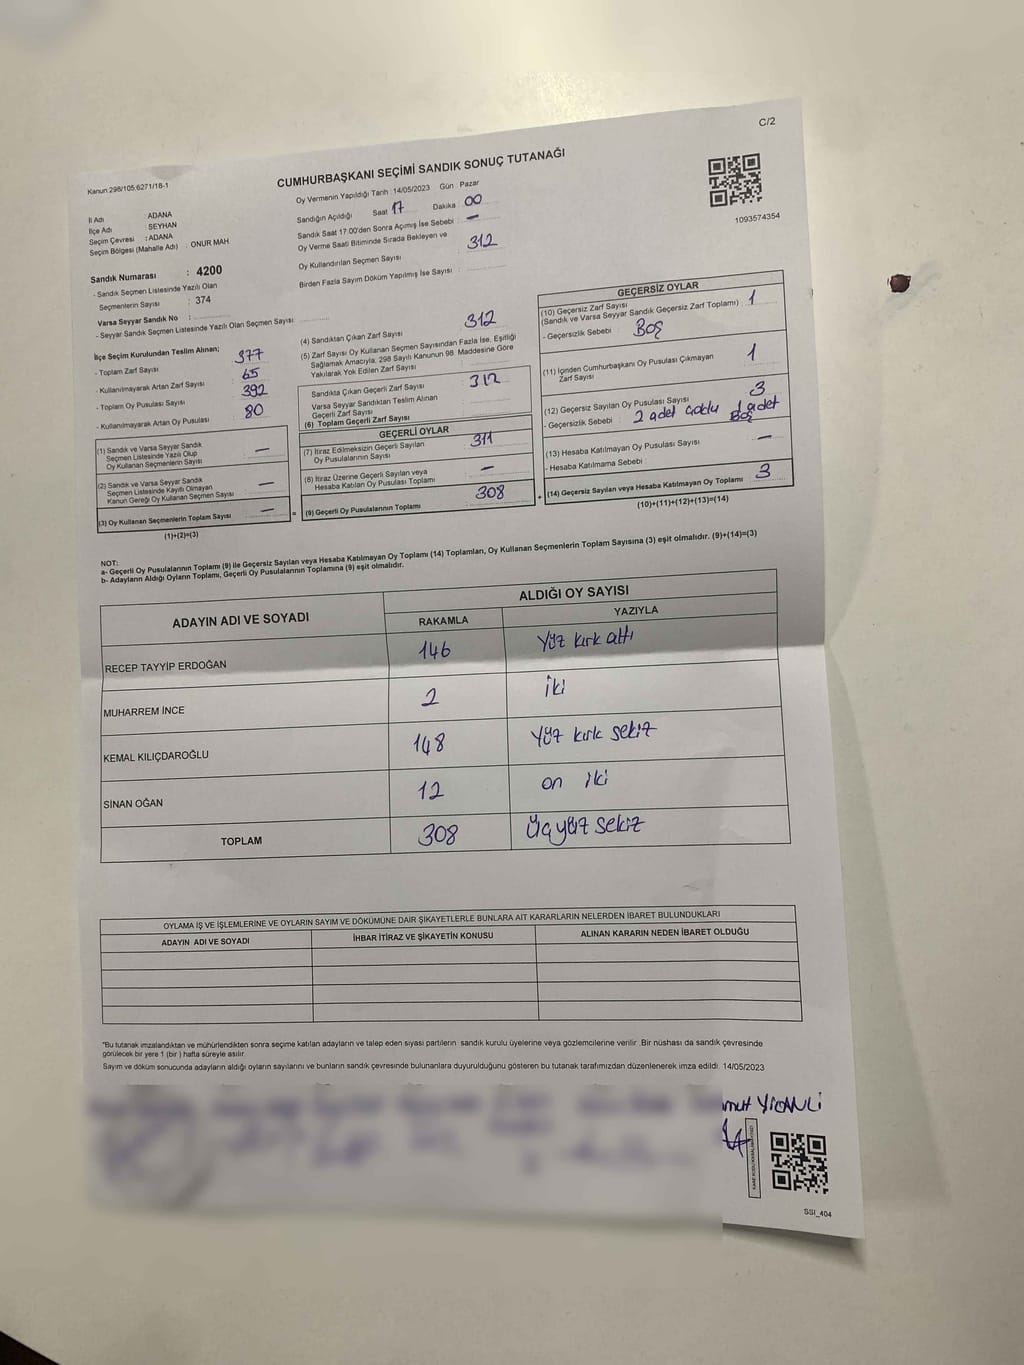 C/2
Kanun 298/105.6271/18-1
CUMHURBAŞKANI SEÇİMİ SANDIK SONUÇ TUTANAĞI
1093574354
İl Adı : ADANA
İlçe Adı SEYHAN
Seçim Çevresi : ADANA
Seçim Bölgesi (Mahalle Adı) : ONUR MAH
Sandık Numarası : 4200
- Sandık Seçmen Listesinde Yazılı Olan
Seçmenlerin Sayısı : 374
Varsa Seyyar Sandık No :
- Seyyar Sandık Seçmen Listesinde Yazılı Olan Seçmen Sayısı:
Oy Vermenin Yapıldığı Tarih : 14/05/2023 Gün : Pazar
Sandığın Açıldığı Saat 17 Dakika : 00
Sandık Saat 17:00'den Sonra Açımış İse Sebebi : —
Oy Verme Saati Bitiminde Sırada Bekleyen ve
Oy Kullandırılan Seçmen Sayısı : 312
Birden Fazla Sayım Döküm Yapılmış İse Sayısı :
İlçe Seçim Kurulundan Teslim Alınan;
- Toplam Zarf Sayısı 377
- Kullanılmayarak Artan Zarf Sayısı : 65
- Toplam Oy Pusulası Sayısı 392
- Kullanılmayarak Artan Oy Pusulası : 80
(1) Sandık ve Varsa Seyyar Sandık
Seçmen Listesinde Yazılı Olup
Oy Kullanan Seçmenlerin Sayısı —
(2) Sandık ve Varsa Seyyar Sandık
Seçmen Listesinde Kayıtlı Olmayan
Kanun Gereği Oy Kullanan Seçmen Sayısı —
(3) Oy Kullanan Seçmenlerin Toplam Sayısı —
(1)+(2)=(3)
(4) Sandıktan Çıkan Zarf Sayısı 312
(5) Zarf Sayısı Oy Kullanan Seçmen Sayısından Fazla İse, Eşitliği
Sağlamak Amacıyla, 298 Sayılı Kanunun 98. Maddesine Göre
Yakılarak Yok Edilen Zarf Sayısı :
Sandıkta Çıkan Geçerli Zarf Sayısı 312
Varsa Seyyar Sandıktan Teslim Alınan
Geçerli Zarf Sayısı
(6) Toplam Geçerli Zarf Sayısı
GEÇERLİ OYLAR
(7) İtiraz Edilmeksizin Geçerli Sayılan
Oy Pusulalarının Sayısı 311
(8) İtiraz Üzerine Geçerli Sayılan veya
Hesaba Katılan Oy Pusulası Toplamı —
= (9) Geçerli Oy Pusulalarının Toplamı 308
GEÇERSİZ OYLAR
(10) Geçersiz Zarf Sayısı
(Sandık ve Varsa Seyyar Sandık Geçersiz Zarf Toplamı) : 1
- Geçersizlik Sebebi : Boş
(11) İçinden Cumhurbaşkanı Oy Pusulası Çıkmayan
Zarf Sayısı 1
(12) Geçersiz Sayılan Oy Pusulası Sayısı 3
- Geçersizlik Sebebi : 2 adet çoklu 1 adet
Boş
(13) Hesaba Katılmayan Oy Pusulası Sayısı —
- Hesaba Katılmama Sebebi :
+ (14) Geçersiz Sayılan veya Hesaba Katılmayan Oy Toplamı 3
(10)+(11)+(12)+(13)=(14)
NOT:
a- Geçerli Oy Pusulalarının Toplamı (9) ile Geçersiz Sayılan veya Hesaba Katılmayan Oy Toplamı (14) Toplamları, Oy Kullanan Seçmenlerin Toplam Sayısına (3) eşit olmalıdır. (9)+(14)=(3)
b- Adayların Aldığı Oyların Toplamı, Geçerli Oy Pusulalarının Toplamına (9) eşit olmalıdır.
ADAYIN ADI VE SOYADI ALDIĞI OY SAYISI
RAKAMLA YAZIYLA
RECEP TAYYİP ERDOĞAN 146 Yüz kırk altı
MUHARREM İNCE 2 iki
KEMAL KILIÇDAROĞLU 148 Yüz kırk sekiz
SİNAN OĞAN 12 on iki
TOPLAM 308 Üçyüz sekiz
OYLAMA İŞ VE İŞLEMLERİNE VE OYLARIN SAYIM VE DÖKÜMÜNE DAİR ŞİKAYETLERLE BUNLARA AİT KARARLARIN NELERDEN İBARET BULUNDUKLARI
ADAYIN ADI VE SOYADI İHBAR İTİRAZ VE ŞİKAYETİN KONUSU ALINAN KARARIN NEDEN İBARET OLDUĞU
"Bu tutanak imzalandıktan ve mühürlendikten sonra seçime katılan adayların ve talep eden siyasi partilerin sandık kurulu üyelerine veya gözlemcilerine verilir. Bir nüshası da sandık çevresinde
görülecek bir yere 1 (bir ) hafta süreyle asılır.
Sayım ve döküm sonucunda adayların aldığı oyların sayılarını ve bunların sandık çevresinde bulunanlara duyurulduğunu gösteren bu tutanak tarafımızdan düzenlenerek imza edildi. 14/05/2023
SSI_404